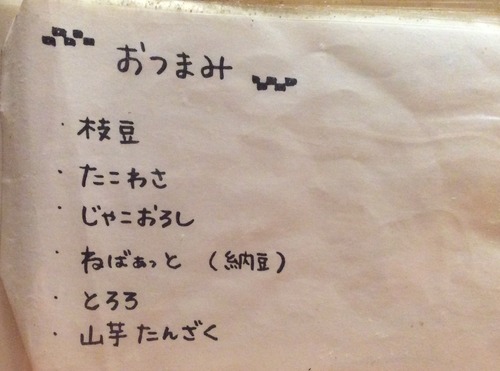 おつまみ
・枝豆
・たこわさ
・じゃこおろし
・ねばぁっと (納豆)
・とろろ
・山芋たんざく